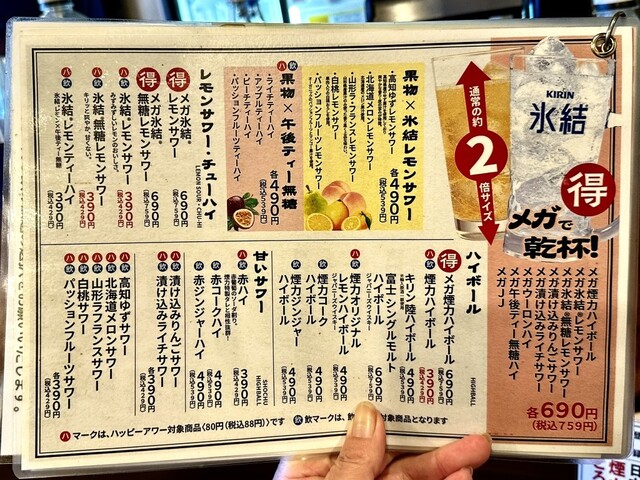 KIRIN
氷結
通常の約
2
倍サイズ
得
メガで
乾杯!
メガ煙力ハイボール
メガ氷結®レモンサワー
メガ氷結®無糖レモンサワー
メガ漬け込みりんごサワー
メガ漬け込みライチサワー
メガウーロンハイ
メガ午後ティー無糖ハイ
メガJJ
各690円
(税込759円)
果物×氷結レモンサワー
各490円
(税込539円)
・高知ゆずレモンサワー
・北海道メロンレモンサワー
・山形ラ・フランスレモンサワー
・白桃レモンサワー
・パッションフルーツレモンサワー
飲 果物×午後ティー無糖
各490円
(税込539円)
・ライチティーハイ
・アップルティーハイ
・ピーチティーハイ
・パッションフルーツティーハイ
レモンサワー・チューハイ
LEMON SOUR・CHU-HI
得 メガ氷結®レモンサワー 690円
(税込759円)
得 メガ氷結®無糖レモンサワー 690円
(税込759円)
ハ 飲 氷結®レモンサワー 390円
(税込429円)
みずみずしいレモンのおいしさ。
ハ 飲 氷結®無糖レモンサワー 390円
(税込429円)
キリッと爽やか、甘くない。
ハ 飲 氷結®レモンティーハイ 390円
(税込429円)
氷結レモン×午後ティー無糖
ハイボール
HIGHBALL
得 メガ煙力ハイボール 690円
(税込759円)
ハ 飲 煙力ハイボール 390円
(税込429円)
キリン 陸ハイボール 490円
(税込539円)
富士シングルモルトハイボール 690円
(税込759円)
ジャパニーズウイスキー
飲 煙力オリジナルレモンハイボール 490円
(税込539円)
飲 煙力コークハイボール 490円
(税込539円)
飲 煙力ジンジャーハイボール 490円
(税込539円)
甘いサワー
SHOCHU HIGHBALL
ハ 飲 赤ハイ 390円
(税込429円)
飲 赤コークハイ 490円
(税込539円)
飲 赤ジンジャーハイ 490円
(税込539円)
ハ 飲 漬け込みりんごサワー
ハ 飲 漬け込みライチサワー
各490円
(税込539円)
ハ 飲 高知ゆずサワー
ハ 飲 北海道メロンサワー
ハ 飲 山形ラフランスサワー
ハ 飲 白桃サワー
ハ 飲 パッションフルーツサワー
各390円
(税込429円)
ハ マークは、ハッピーアワー対象商品〈80円(税込88円)〉です
飲 マークは、飲み放題対象商品となります